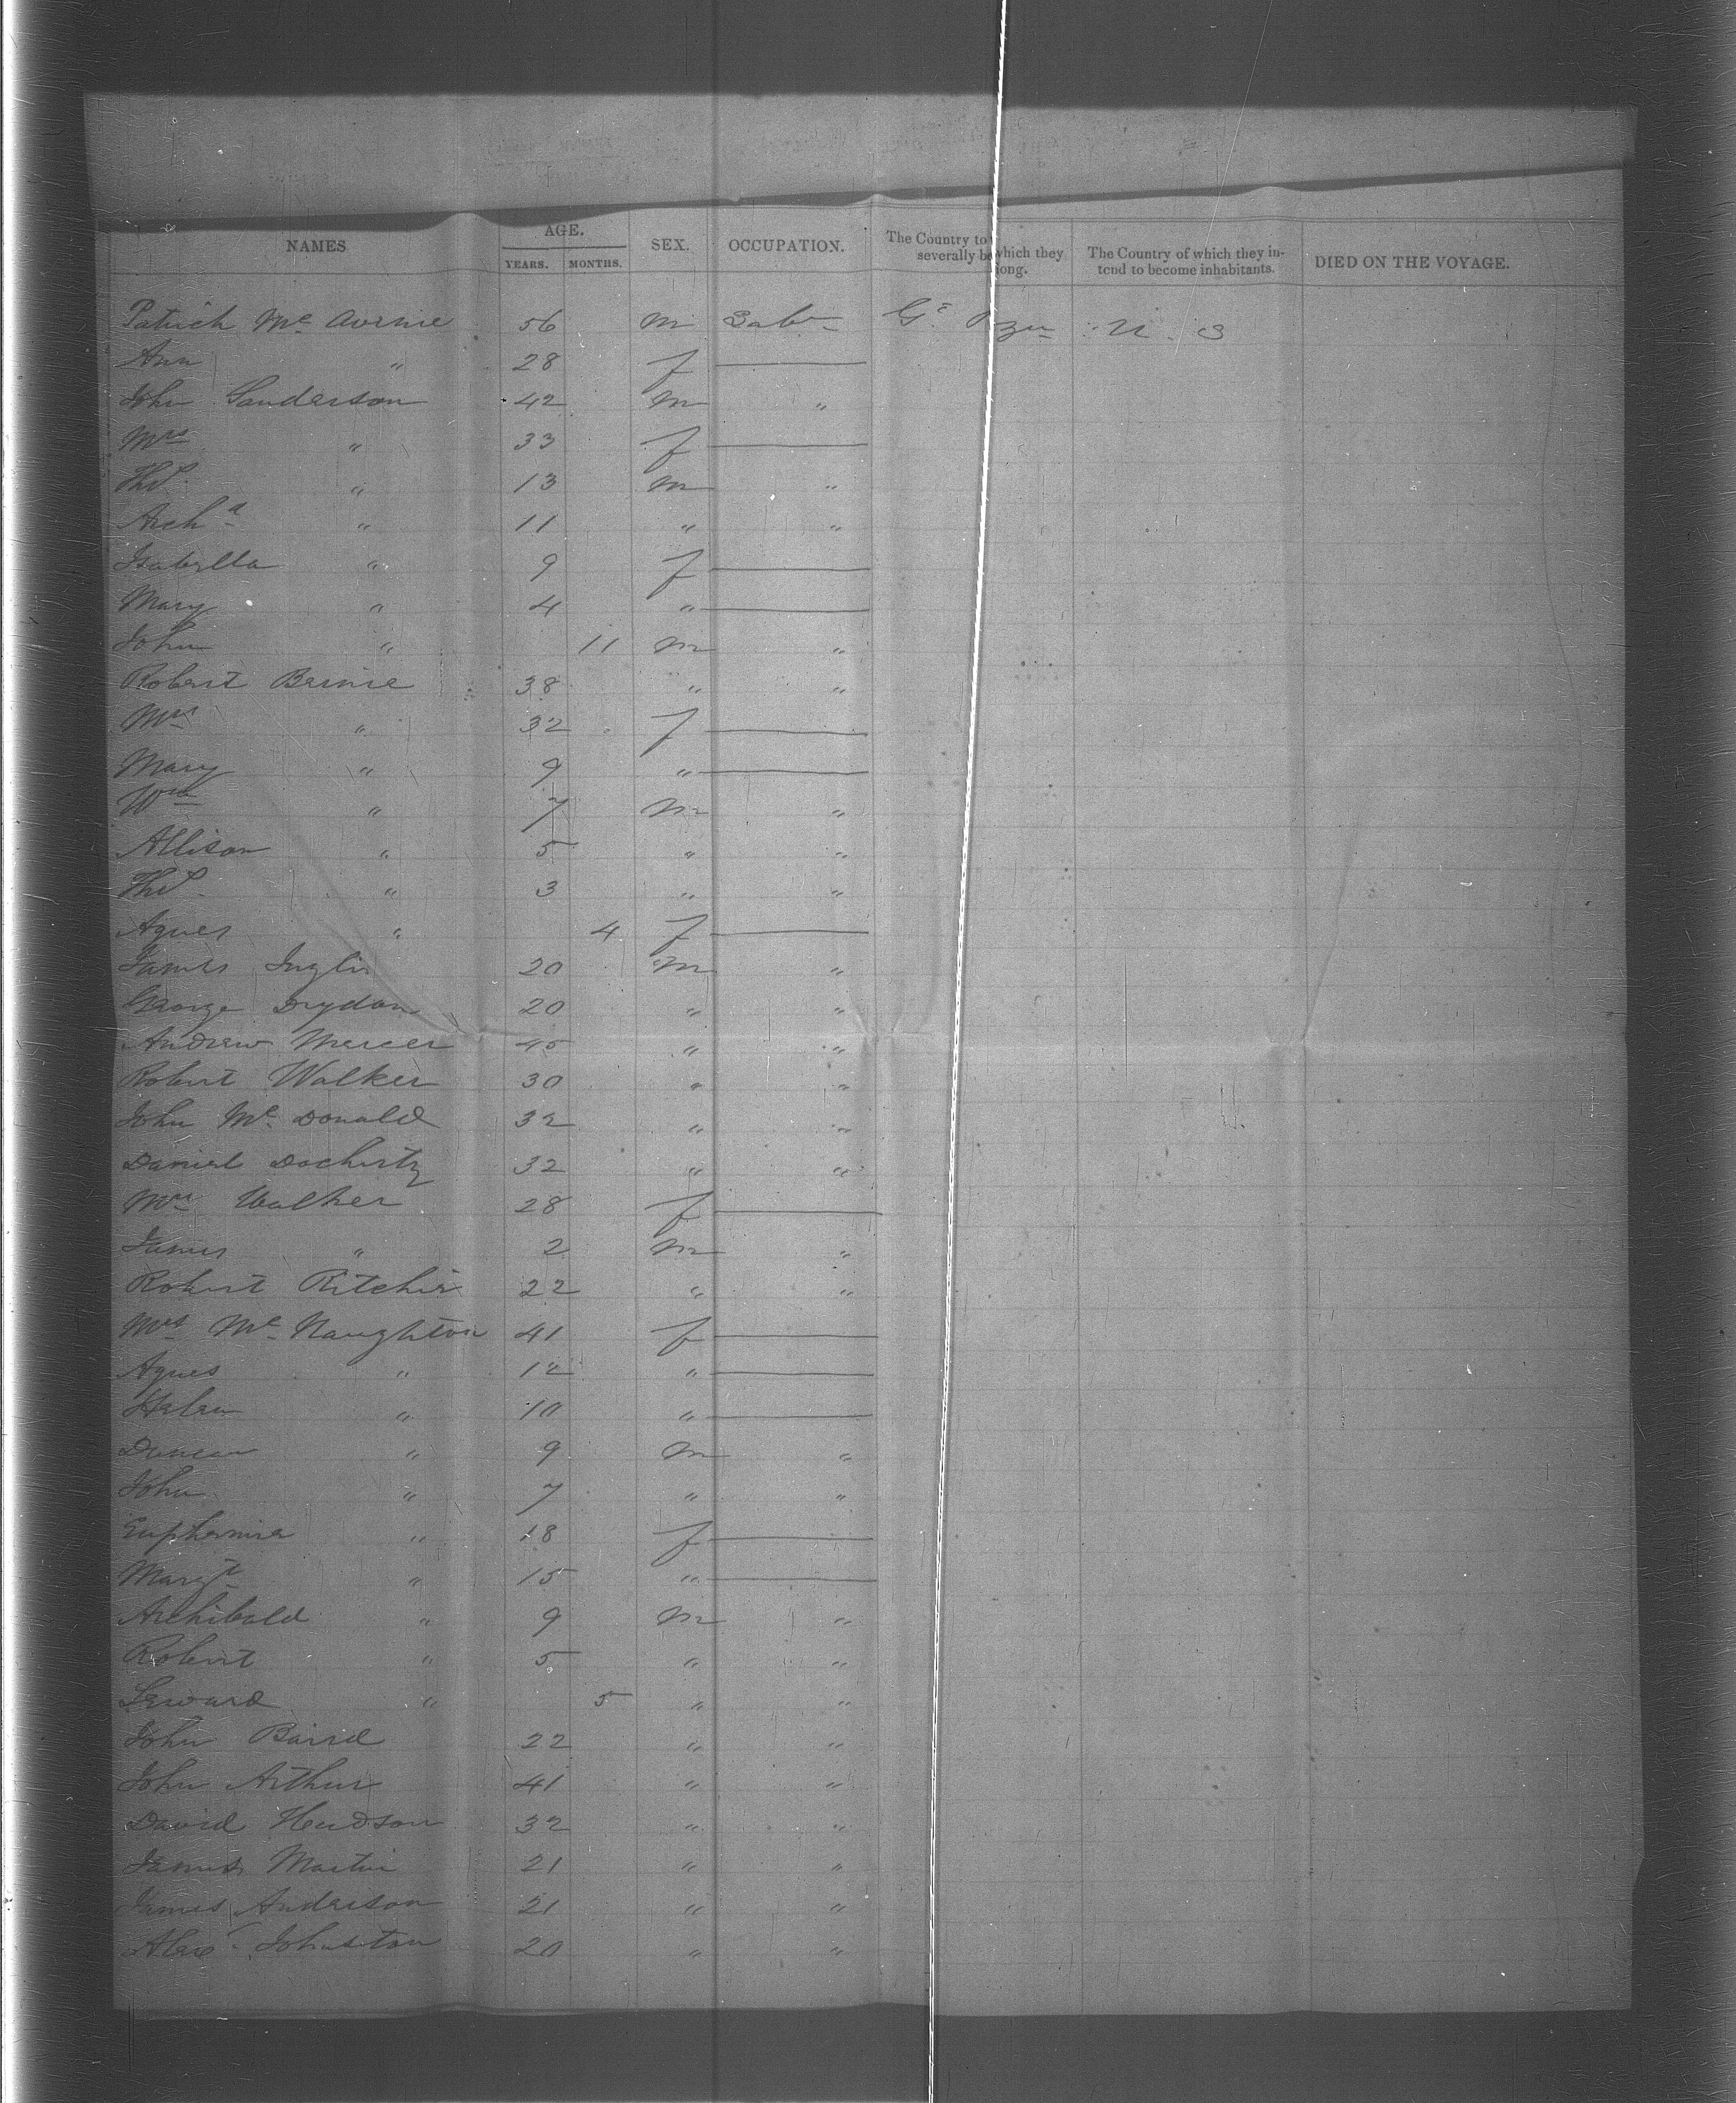 NAMES AGE. SEX. OCCUPATION. The Country to which they severally belong. The Country of which they intend to become inhabitants. DIED ON THE VOYAGE.
YEARS. MONTHS.
Patrick Mc Avenue 56 m Labr Gt Brn U. S
Ann " 28 f
John Sanderson 42 m "
Mrs " 33 f
Thos " 13 m "
Archd " 11 " "
Isabella " 9 f
Mary " 4 "
John " 11 m "
Robert Bernie 38 " "
Mrs " 32 f
Mary " 9 "
Wm " 7 m "
Allison " 5 " "
Thos " 3 " "
Agnes " 4 f
James Inglis 20 m "
George Drydon 20 " "
Andrew Mercer 45 " "
Robert Walker 30 " "
John Mc Donald 32 " "
Daniel Docherty 32 " "
Mrs Walker 28 f
James " 2 m "
Robert Ritchie 22 " "
Mrs Mc Naughton 41 f
Agnes " 12 "
Helen " 10 "
Duncan " 9 m "
John " 7 " "
Euphemia " 18 f
Margt " 15 "
Archibald " 9 m "
Robert " 5 " "
" 5 " "
John Baird 22 " "
John Arthur 41 " "
David Hudson 32 " "
James Martin 21 " "
James Anderson 21 " "
Alexr Johnston 20 " "